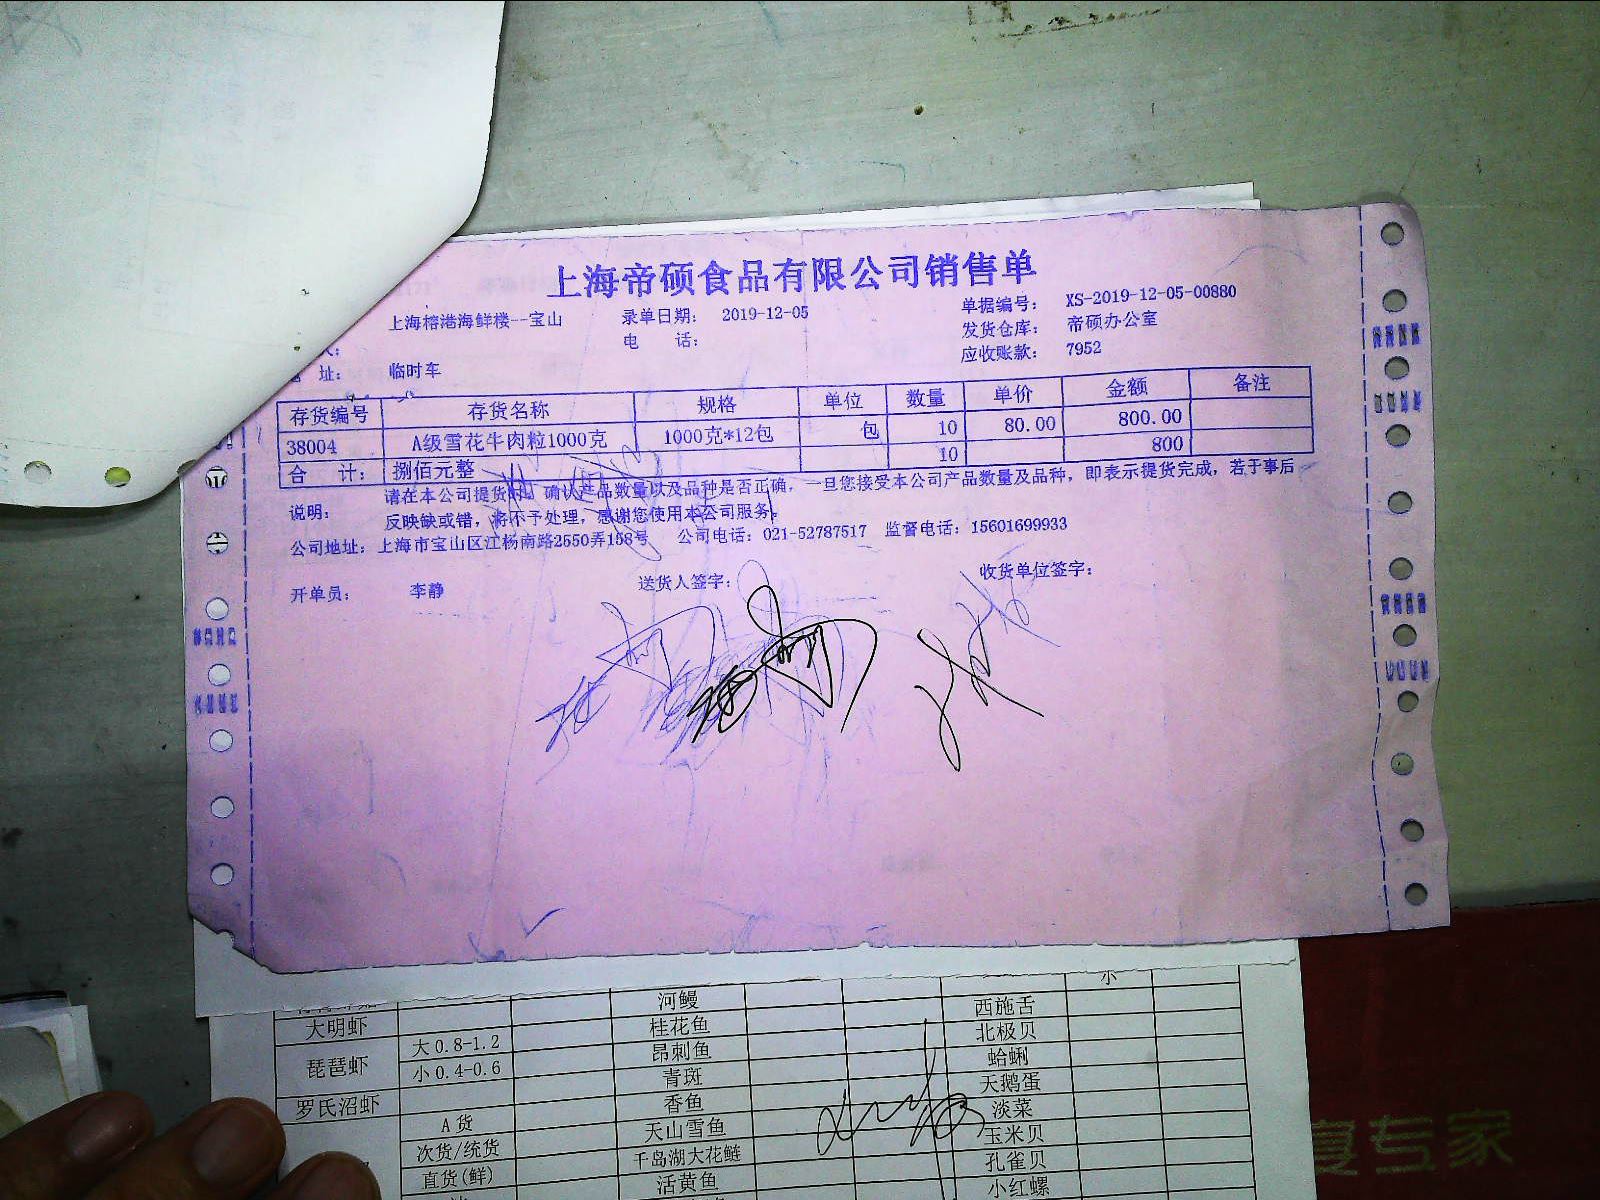 上海帝硕食品有限公司销售单
上海榕港海鲜楼--宝山 录单日期： 2019-12-05 单据编号： XS-2019-12-05-00880
人： 电 话： 发货仓库： 帝硕办公室
址： 临时车 应收账款： 7952
存货编号 存货名称 规格 单位 数量 单价 金额 备注
38004 A级雪花牛肉粒1000克 1000克*12包 包 10 80.00 800.00
合 计： 捌佰元整 10 800
说明： 请在本公司提货时，确认产品数量以及品种是否正确，一旦您接受本公司产品数量及品种，即表示提货完成，若于事后
反映缺或错，将不予处理，感谢您使用本公司服务。
公司地址：上海市宝山区江杨南路2550弄158号 公司电话：021-52787517 监督电话：15601699933
开单员： 李静 送货人签字： 收货单位签字：
小
河鳗 西施舌
大明虾 桂花鱼 北极贝
琵琶虾 大0.8-1.2 昂刺鱼 蛤蜊
小0.4-0.6 青斑 天鹅蛋
罗氏沼虾 香鱼 淡菜
A货 天山雪鱼 玉米贝
次货/统货 千岛湖大花鲢 孔雀贝
直货(鲜) 活黄鱼 小红螺
专家